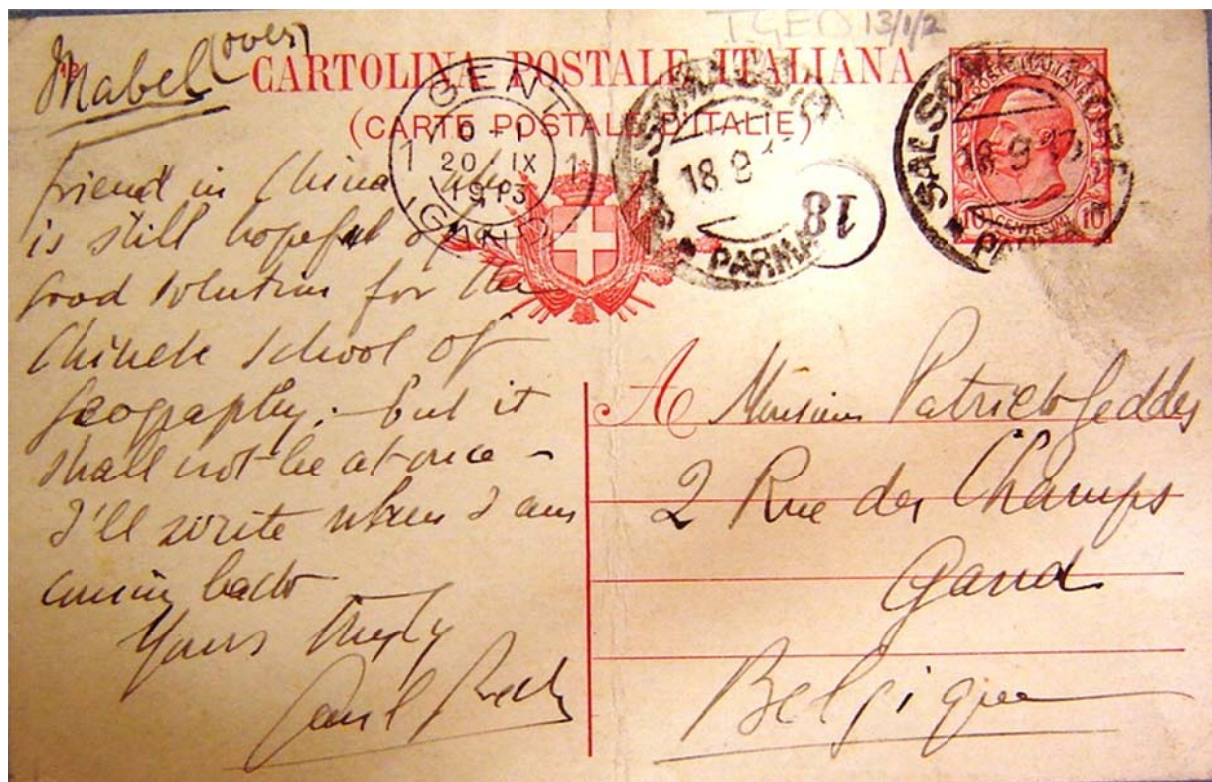 T.GED 13/1/2
Mabel (over)
CARTOLINA POSTALE ITALIANA
(CARTE POSTALE D'ITALIE)
GENT
0-1
20 IX
1913
GAND
18 9
PARMA
18
SALSOMAGGIORE
18.9.13
PARMA
POSTE ITALIANE
10 CENTESIMI 10
friend in China who
is still hopeful of
good solution for the
Chinese School of
geography. - but it
shall not be at once -
I'll write when I am
coming back
Yours truly
Paul
A Monsieur Patrick Geddes
2 Rue des Champs
Gand
Belgique